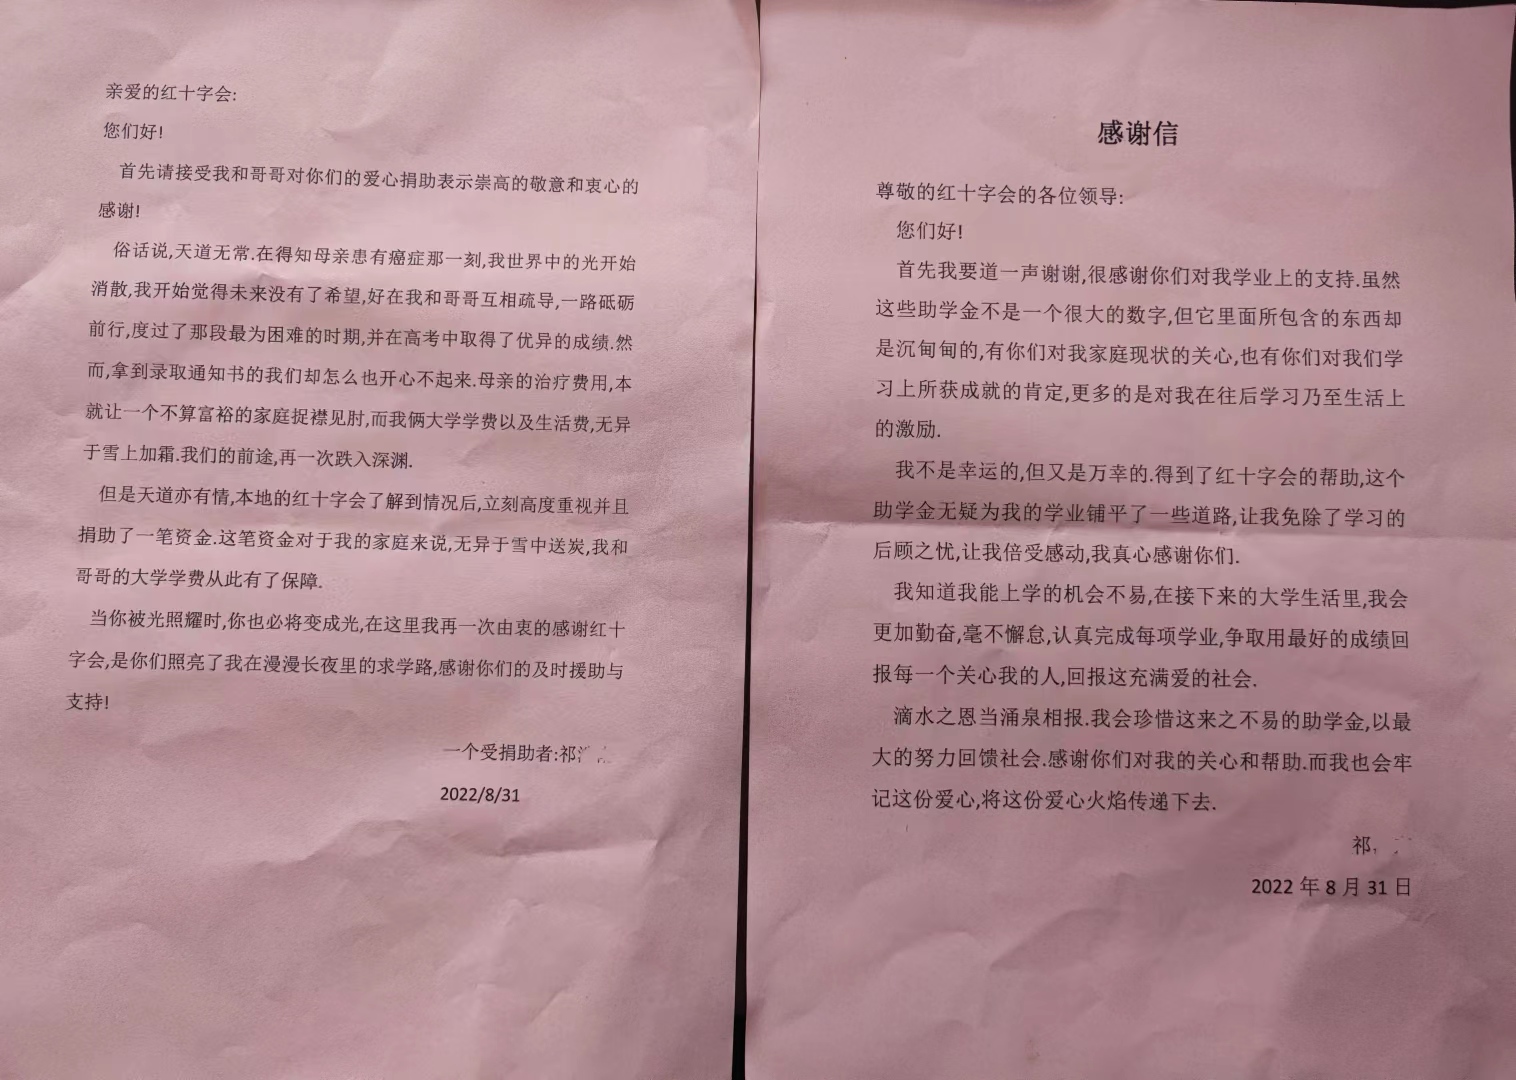 亲爱的红十字会:
您们好!
首先请接受我和哥哥对你们的爱心捐助表示崇高的敬意和衷心的
感谢!
俗话说,天道无常.在得知母亲患有癌症那一刻,我世界中的光开始
消散,我开始觉得未来没有了希望,好在我和哥哥互相疏导,一路砥砺
前行,度过了那段最为困难的时期,并在高考中取得了优异的成绩.然
而,拿到录取通知书的我们却怎么也开心不起来.母亲的治疗费用,本
就让一个不算富裕的家庭捉襟见肘,而我俩大学学费以及生活费,无异
于雪上加霜.我们的前途,再一次跌入深渊.
但是天道亦有情,本地的红十字会了解到情况后,立刻高度重视并且
捐助了一笔资金.这笔资金对于我的家庭来说,无异于雪中送炭,我和
哥哥的大学学费从此有了保障.
当你被光照耀时,你也必将变成光,在这里我再一次由衷的感谢红十
字会,是你们照亮了我在漫漫长夜里的求学路,感谢你们的及时援助与
支持!
一个受捐助者:祁
2022/8/31
感谢信
尊敬的红十字会的各位领导:
您们好!
首先我要道一声谢谢,很感谢你们对我学业上的支持.虽然
这些助学金不是一个很大的数字,但它里面所包含的东西却
是沉甸甸的,有你们对我家庭现状的关心,也有你们对我们学
习上所获成就的肯定,更多的是对我在往后学习乃至生活上
的激励.
我不是幸运的,但又是万幸的.得到了红十字会的帮助,这个
助学金无疑为我的学业铺平了一些道路,让我免除了学习的
后顾之忧,让我倍受感动,我真心感谢你们.
我知道我能上学的机会不易,在接下来的大学生活里,我会
更加勤奋,毫不懈怠,认真完成每项学业,争取用最好的成绩回
报每一个关心我的人,回报这充满爱的社会.
滴水之恩当涌泉相报.我会珍惜这来之不易的助学金,以最
大的努力回馈社会.感谢你们对我的关心和帮助.而我也会牢
记这份爱心,将这份爱心火焰传递下去.
祁
2022 年 8 月 31 日